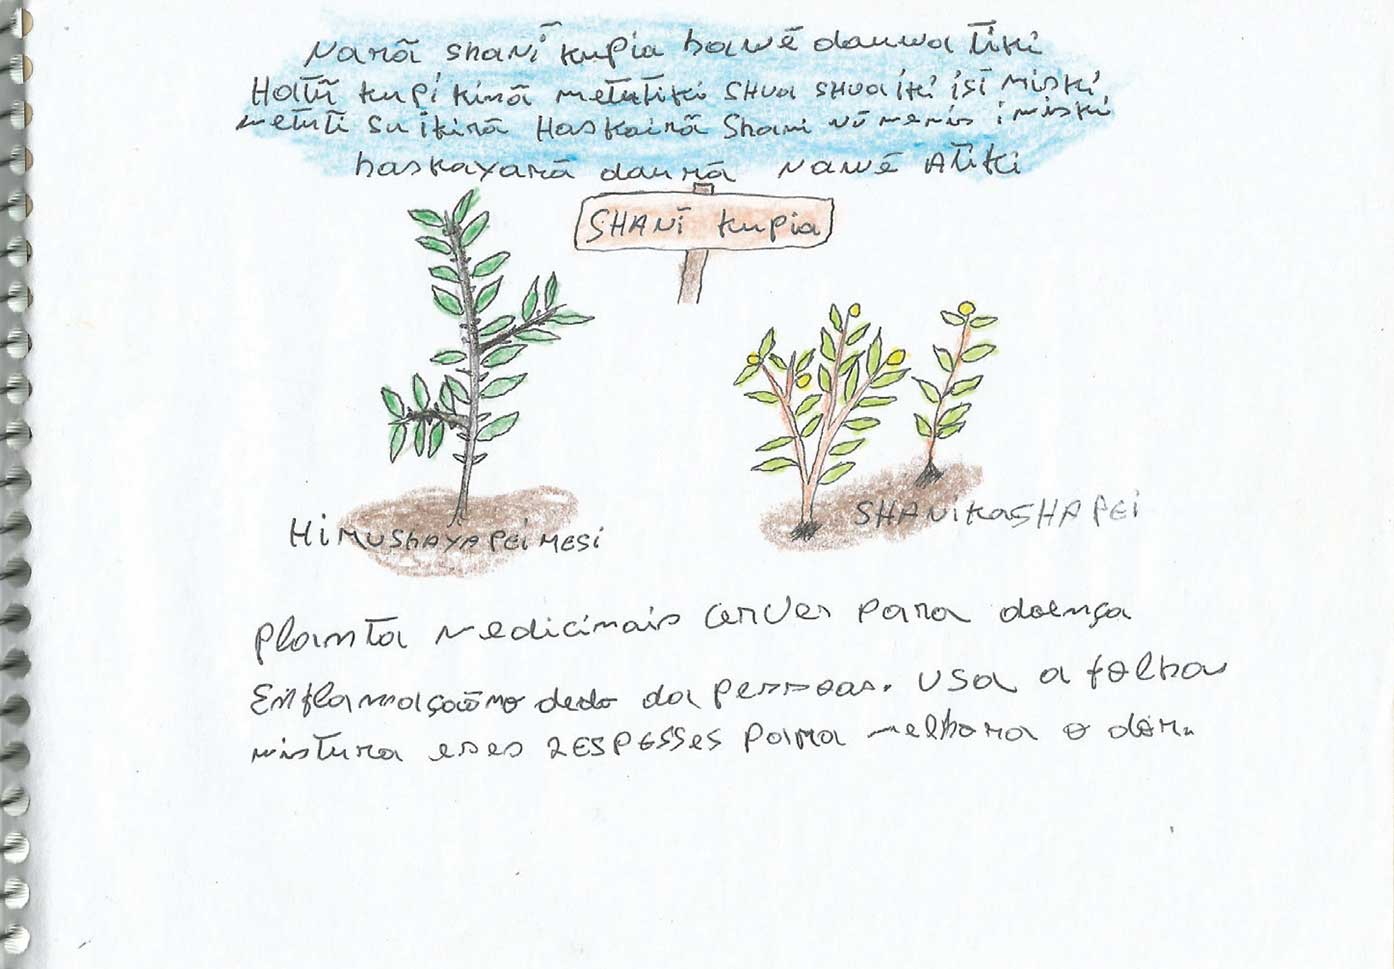 Narã shanĩ kupia hawẽ dauwa tiki
Hatũ kupi kinã metutiki SHUA SHUA iki isĩ miski
metuti su ikinã Haskainã Shani nũ menis i miski
haskayarã daurã Nawẽ Atiki
SHANĨ kupia
HiMUSHAYA PEI MESI
SHANiKaSHA PEi
planta medicimais cerver para doença
Enflamação no dedo da pessoas. USA a folha
mistura eses 2 ESPESSES para melhora o dor.